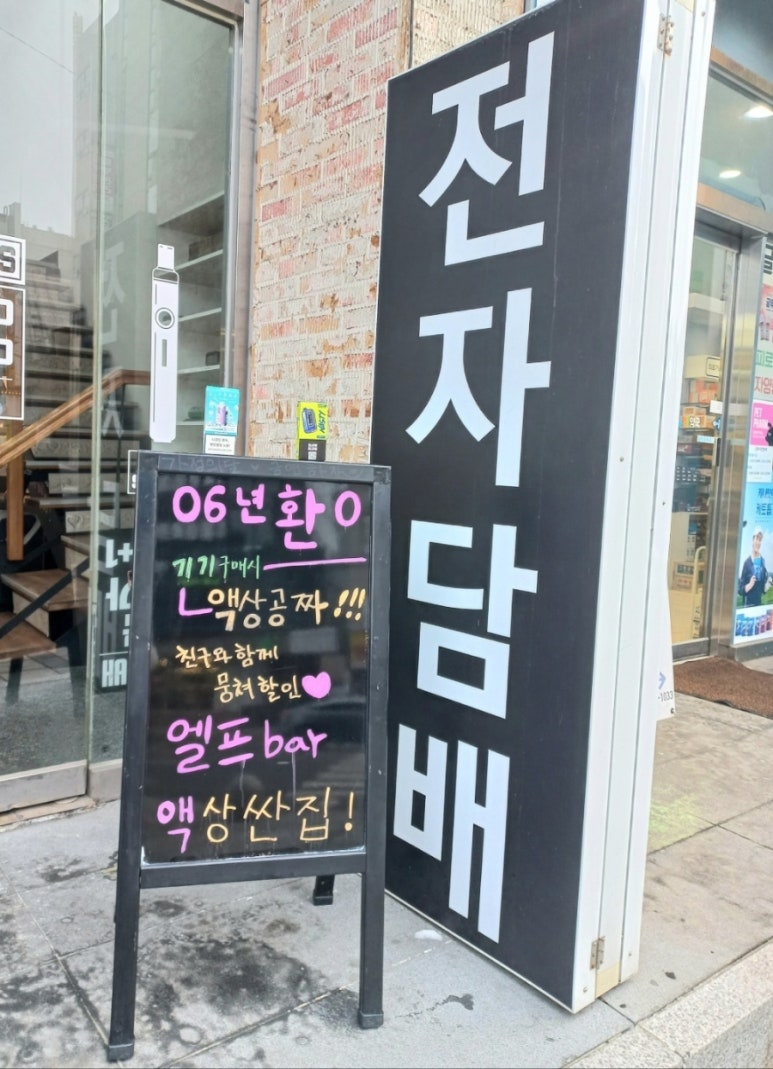 06년 환 0
기기구매시
ㄴ액상공짜!!!
친구와 함께
뭉쳐할인♥
엘프bar
액상싼집!
전
자
담
배